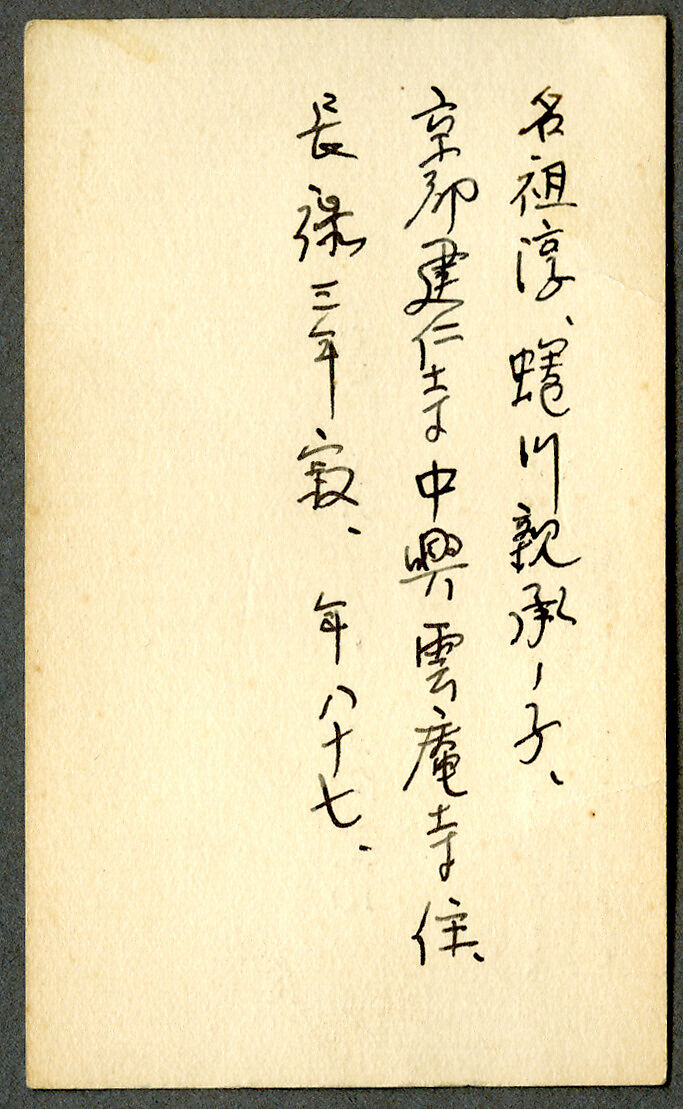 名祖淳、蜷川親承ノ子、
京都建仁寺中興雲庵寺住、
長禄三年寂、年八十七、